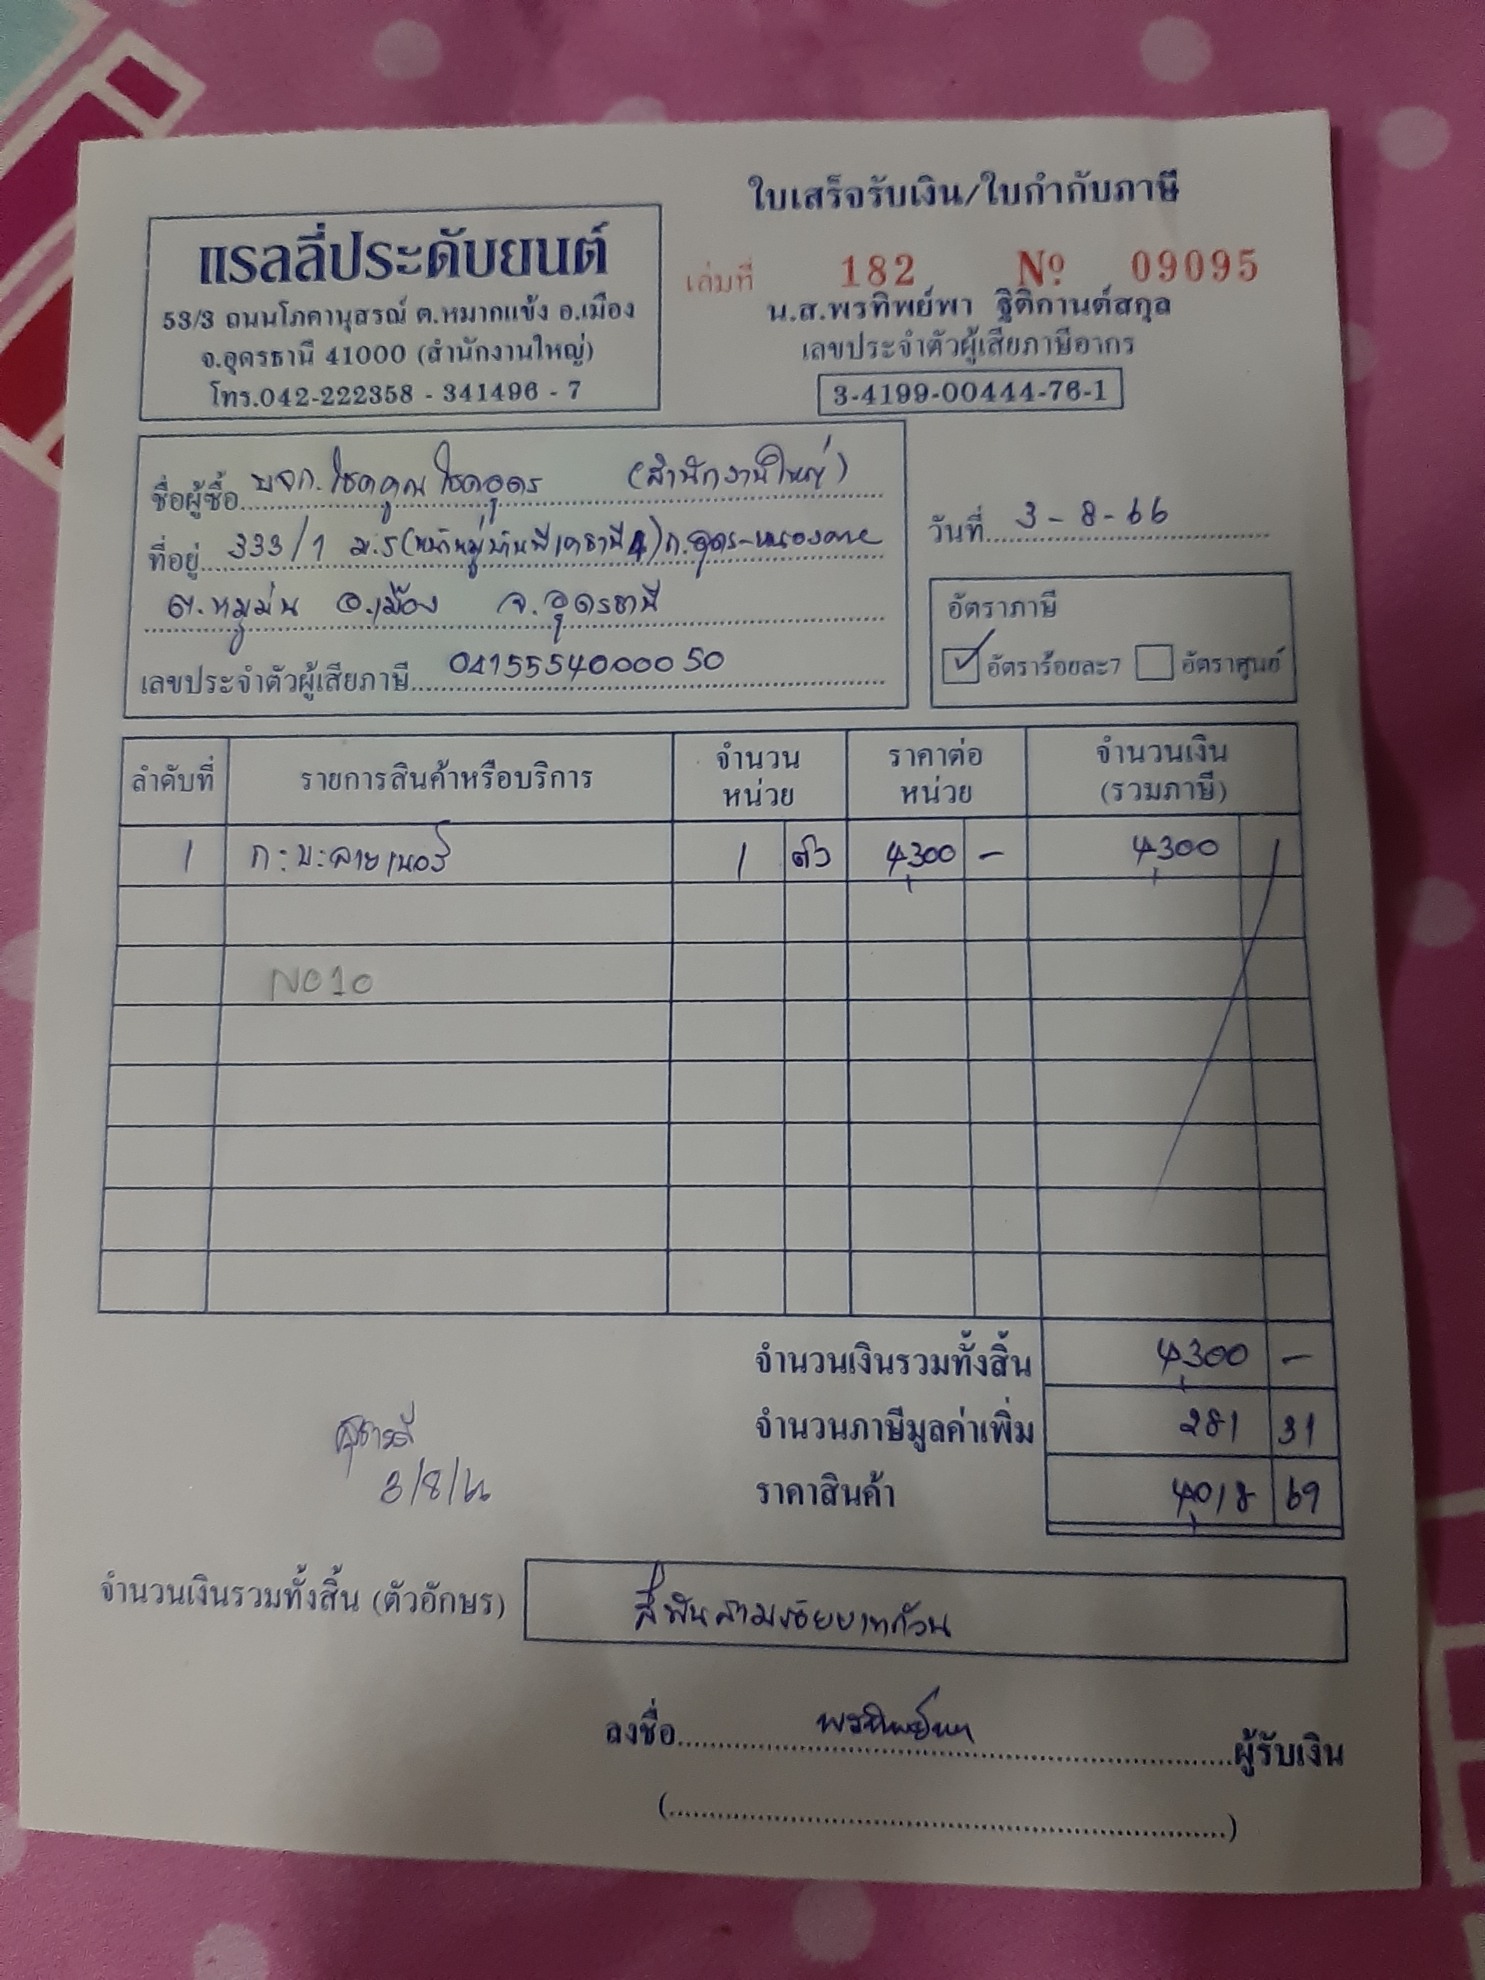 ใบเสร็จรับเงิน/ใบกำกับภาษี
แรลลี่ประดับยนต์
53/3 ถนนโภคานุสรณ์ ต.หมากแข้ง อ.เมือง
จ.อุดรธานี 41000 (สำนักงานใหญ่)
โทร.042-222358 - 341496 - 7
เล่มที่ 182 Nº 09095
น.ส.พรทิพย์พา ฐิติกานต์สกุล
เลขประจำตัวผู้เสียภาษีอากร
3-4199-00444-76-1
ชื่อผู้ซื้อ บจก. โชคคูณโชคอุดร (สำนักงานใหญ่)
ที่อยู่ 333/1 ม.5 (หน้าหมู่บ้าน 4) ถ.อุดร-หนองคาย
ต.หมูม่น อ.เมือง จ.อุดรธานี
เลขประจำตัวผู้เสียภาษี 0415554000050
วันที่ 3-8-66
อัตราภาษี
อัตราร้อยละ7 อัตราศูนย์
ลำดับที่ รายการสินค้าหรือบริการ จำนวนหน่วย ราคาต่อหน่วย จำนวนเงิน (รวมภาษี)
1 ก:บ:ลายเนอร์ 1 ตัว 4,300 - 4,300
NO10
จำนวนเงินรวมทั้งสิ้น 4,300 -
จำนวนภาษีมูลค่าเพิ่ม 281 31
ราคาสินค้า 4,018 69
3/8/66
จำนวนเงินรวมทั้งสิ้น (ตัวอักษร) สี่พันสามร้อยบาทถ้วน
ลงชื่อ พรทิพย์พา ผู้รับเงิน
(....................)